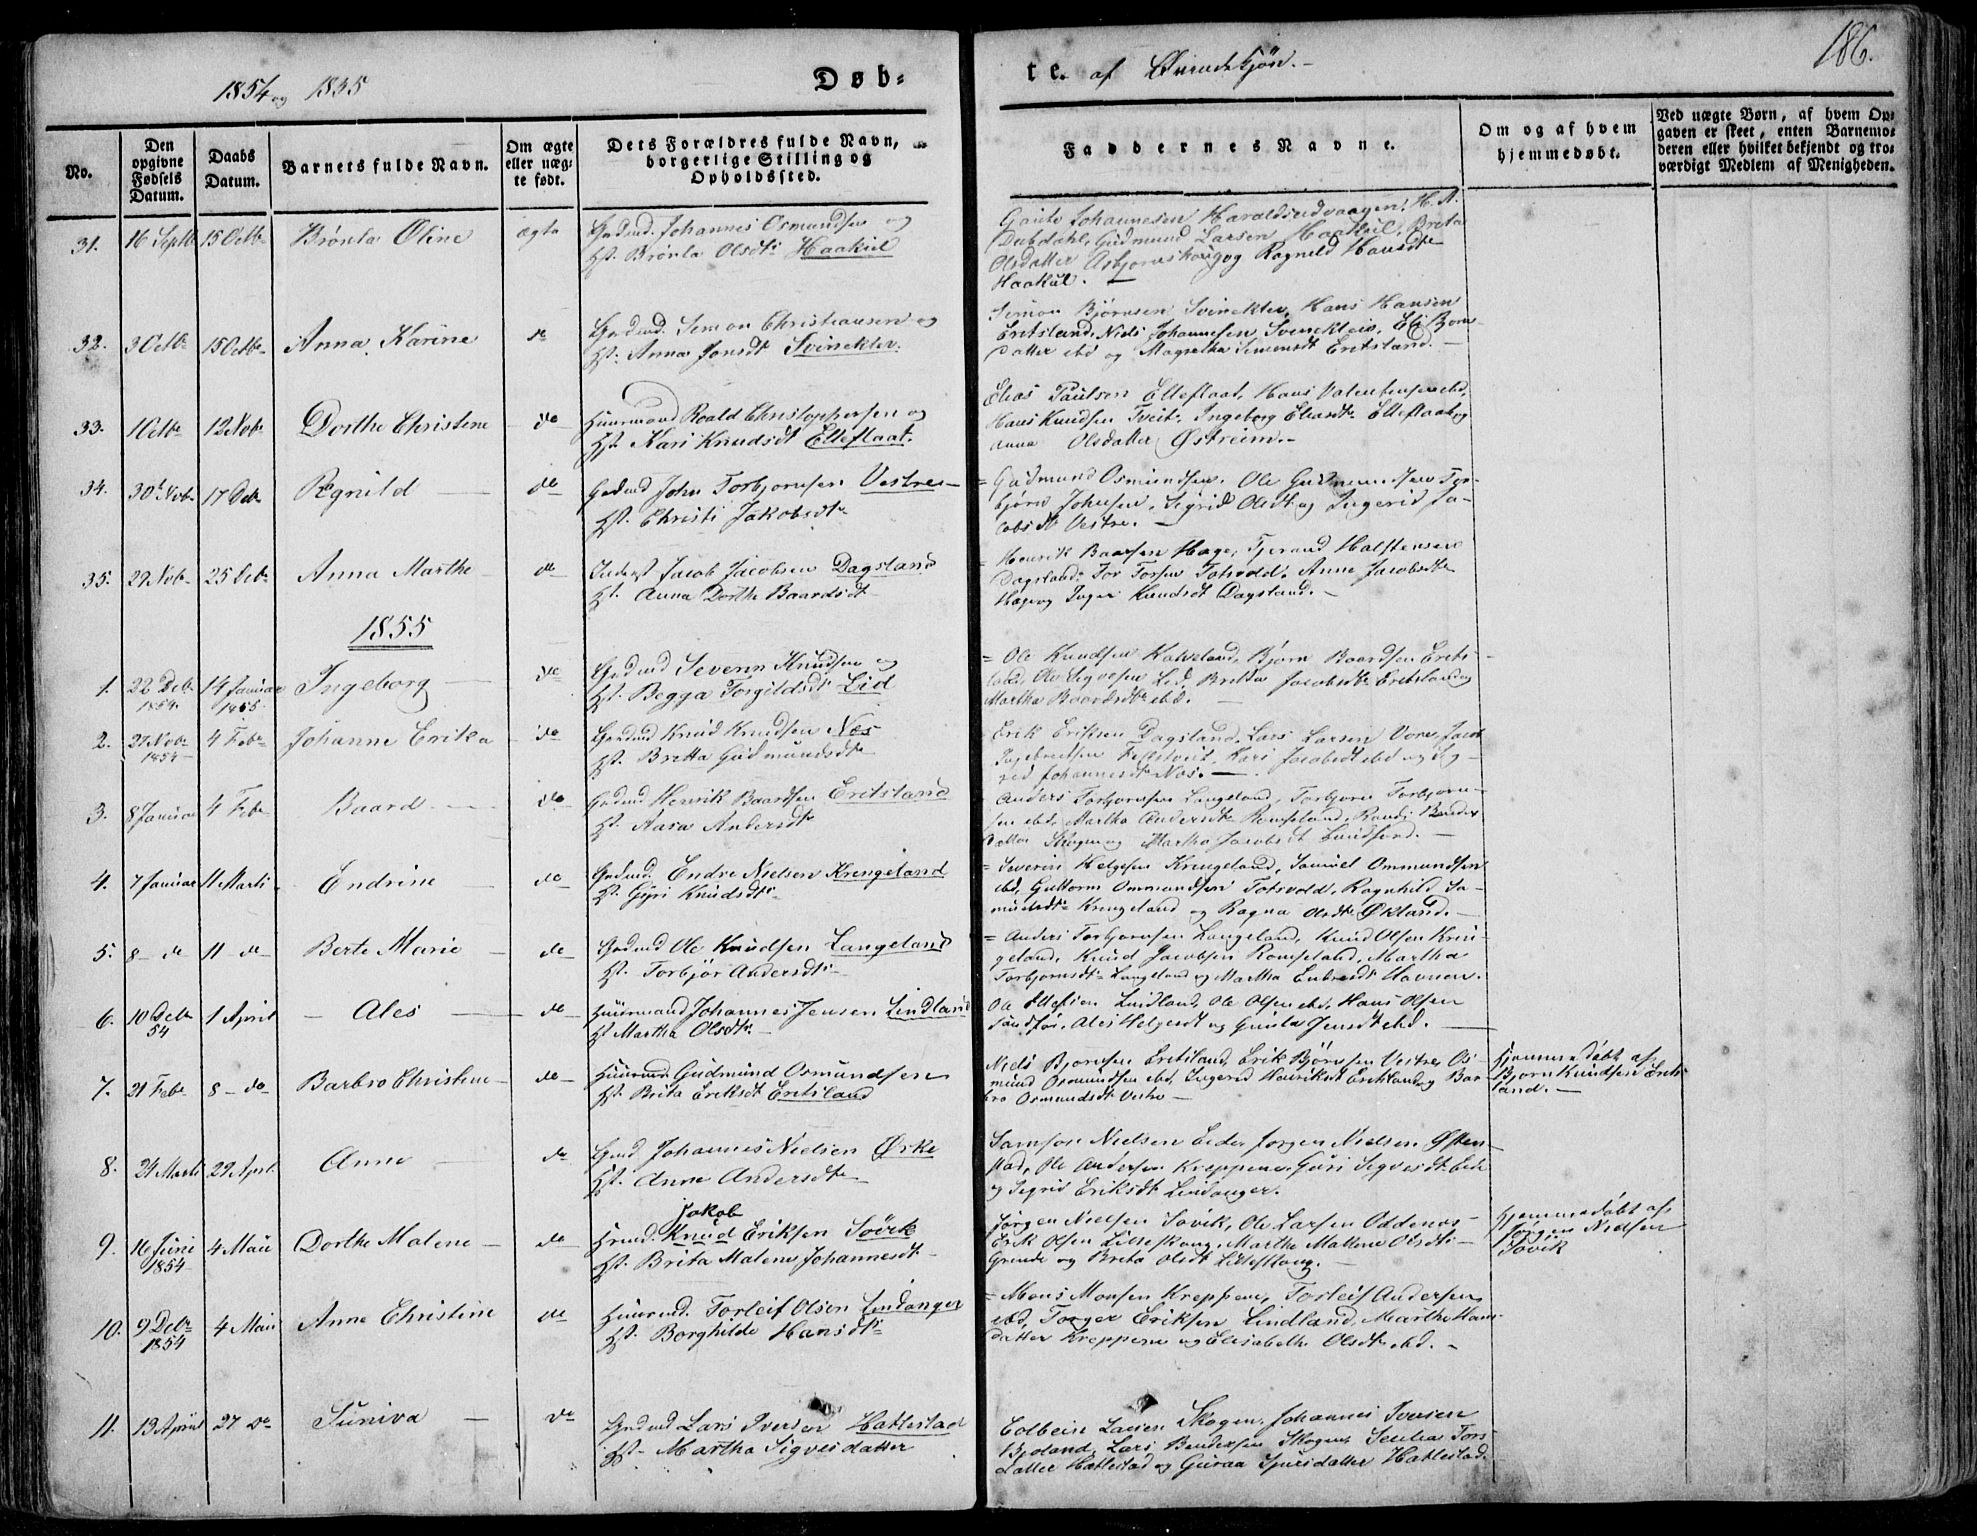 186.
1854 og 1855
Døb-
te. af Qvindekjön.-
No.
Den opgivne Fødsels Datum.
Daabs Datum.
Barnets fulde Navn.
Om ægte eller uæg-
te født.
Dets Forældres fulde Navn,
borgerlige Stilling og
Opholdssted.
Faddernes Navne.
Om og af hvem
hjemmedøbt.
Ved uægte Børn, af hvem Op-
gaven er skeet, enten Barnemo-
deren eller hvilket bekjendt og tro-
værdigt Medlem af Menigheden.
31. 16 Septb 15 Octbr Brönla Oline ægte
Grdmd. Johannes Osmundsen og
Hst. Brönla Olsdtr Haakul
Gaute Johannesen Haraldseidvaagen, H. A.
Dybdahl, Gudmund Larsen Haakul, Brita
Olsdatter Asbjörnskoug og Ragnild Hansdtr
Haakul.
32. 3 Octbr 15 Octbr Anna Karine do
Grdmd. Simon Christiansen og
Hst. Anna Jonsdt Svinekler.
Simon Björnsen Svinekler, Hans Hansen
Eretsland, Niels Johannesen Svinekleiv, Eli Björn-
datter ibd og Magretha Simonsdt Eretsland.
33. 1 Octbr 12 Nobr Dorthe Christine do
Huusmand Roald Christophersen og
Hst. Kari Knudsdt Elleflaat.
Elias Paulsen Elleflaat, Hans Valentinsen ibd,
Hans Knudsen Tveit, Ingeborg Eliasdtr Elleflaat og
Anna Olsdatter Østreim.-
34. 30t Nobr 17 Debr Regnild do
Grdmd John Torbjornsen Vestre
Hst. Christi Jakobsdtr
Gudmund Osmundsen, Ole Gudmundsen Tor-
björn Johnsen, Sigrid Olsdt og Ingerid Ja-
cobsdt Vestre.
35. 29 Nobr 25 Debr Anna Marthe do
Inderst Jacob Jacobsen Dagsland
Hst. Anna Dorthe Baardsdt
Henrik Baarsen Hage, Tjerand Halstensen
Dagsland, Tor Torsen Totsvold, Anne Jacobsdtr
Hage og Inger Knudsdt Dagsland.-
1855
1. 22 Debr 1854. 14 Januar 1855 Ingeborg do
Grdmd Severin Knudsen og
Hst. Begga Torgildsdt Lid
Ole Knudsen Kalveland, Björn Baardsen Erets-
land, Ole Sigvesen Lid, Britha Jacobsdtr Eretsland og
Martha Baardsdtr ibd.
2. 27 Nobr 1854 4 Febr Johanne Erika do
Grdmd Knud Knudsen Nes
Hst. Britta Gudmundsdtr
Erik Eriksen Dagsland, Lars Larsen Vore, Jacob
Ingebretsen Fettveit, Kari Jacobsdt ibd og Sig-
rid Johannesdtr Nes.
3. 8 Januar 4 Febr Baard do
Grdmd Henrik Baardsen Eretsland
Hst. Aasa Andersdtr
Anders Torbjornsen Langeland, Torbjorn Torbjorn-
sen ibd, Martha Andersdtr Romseland, Randi Bendix
datter Skogen og Martha Jacobsdt Lundsford.
4. 7 Januar 11 Marti Endrine do
Grdmd. Endre Nielsen Krengeland
Hst. Guri Knudsdtr
Severin Helgesen Krengeland, Samuel Ommundsen
ibd, Guttorm Ommundsen Totsvold, Ragnhild Sa-
muelsdtr Krengeland og Ragna Olsdtr Økland.
5. 8 - do 11 - do Berte Marie do
Grdmd Ole Knudsen Langeland
Hst. Torbjör Andersdtr
Anders Torbjornsen Langeland, Knud Olsen Kren-
geland, Knud Jacobsen Romseland, Martha
Torbjornsdtr Langeland og Martha Endresdt Havnen.
6. 10 Debr 54 1 April Ales do
Huusmand Johannes Jensen Lindland
Hst Martha Olsdtr
Ole Ellefsen Lindland, Ole Olsen ibd, Hans Olsen
Sandfär, Ales Helgesdt og Gunla Jensdtr ibd.
7. 21 Febr 8 - do Barbro Christine do
Huusmd Gudmund Osmundsen
Hst. Brita Eriksdt Eretsland
Niels Bjornsen Eretsland, Erik Björnsen Vestre, Os-
mund Osmundsen ibd, Ingerid Henriksdt Eretsland og Bar-
bro Osmundsdt Vestre
Hjemmedöbt af
Bjorn Knudsen Erets-
land.
8. 24 Marts 29 April Anne do
Grmd Johannes Nielsen Ørke
Hst. Anne Andersdtr
Samson Nielsen Eide, Jorgen Nielsen Østen-
stad, Ole Andersen Kreppene, Guri Sigvesdt Eide
og Sigrid Eriksdt Lindanger.
9. 16 Juni 1854 4 Maii Dorthe Malene do
Jakob
Hrmd. Knud Eriksen Sövik
Hst. Brita Malene Johannesdt
Jörgen Nielsen Sövik, Ole Larsen Oddenes
Erik Olsen Lilleskoug, Marthe Mallene Olsdtr
Grinde og Brita Olsdt Lilleskoug.
Hjemmedöbt af
Jörgen Nielsen
Sövik
10. 9 Debr 1854 4 Maii Anne Christine do
Huusmd. Torleif Olsen Lindanger
Hst. Borghilde Hansdtr
Mons Monsen Kreppene, Torleif Andersen
ibd, Torger Eriksen Lindland, Marthe Hans-
datter Kreppene og Elisabeth Olsdtr ibd.
11. 13 April 27 do Suniva do
Grdmd Lars Iversen Hattestad
Hst. Martha Sigvesdatter
Colbein Larsen Skogen, Johannes Iversen
Bjoland, Lars Bendixsen Skogen, Tors-
datter Hattestad og Guraa Sjursdatter Hattestad.